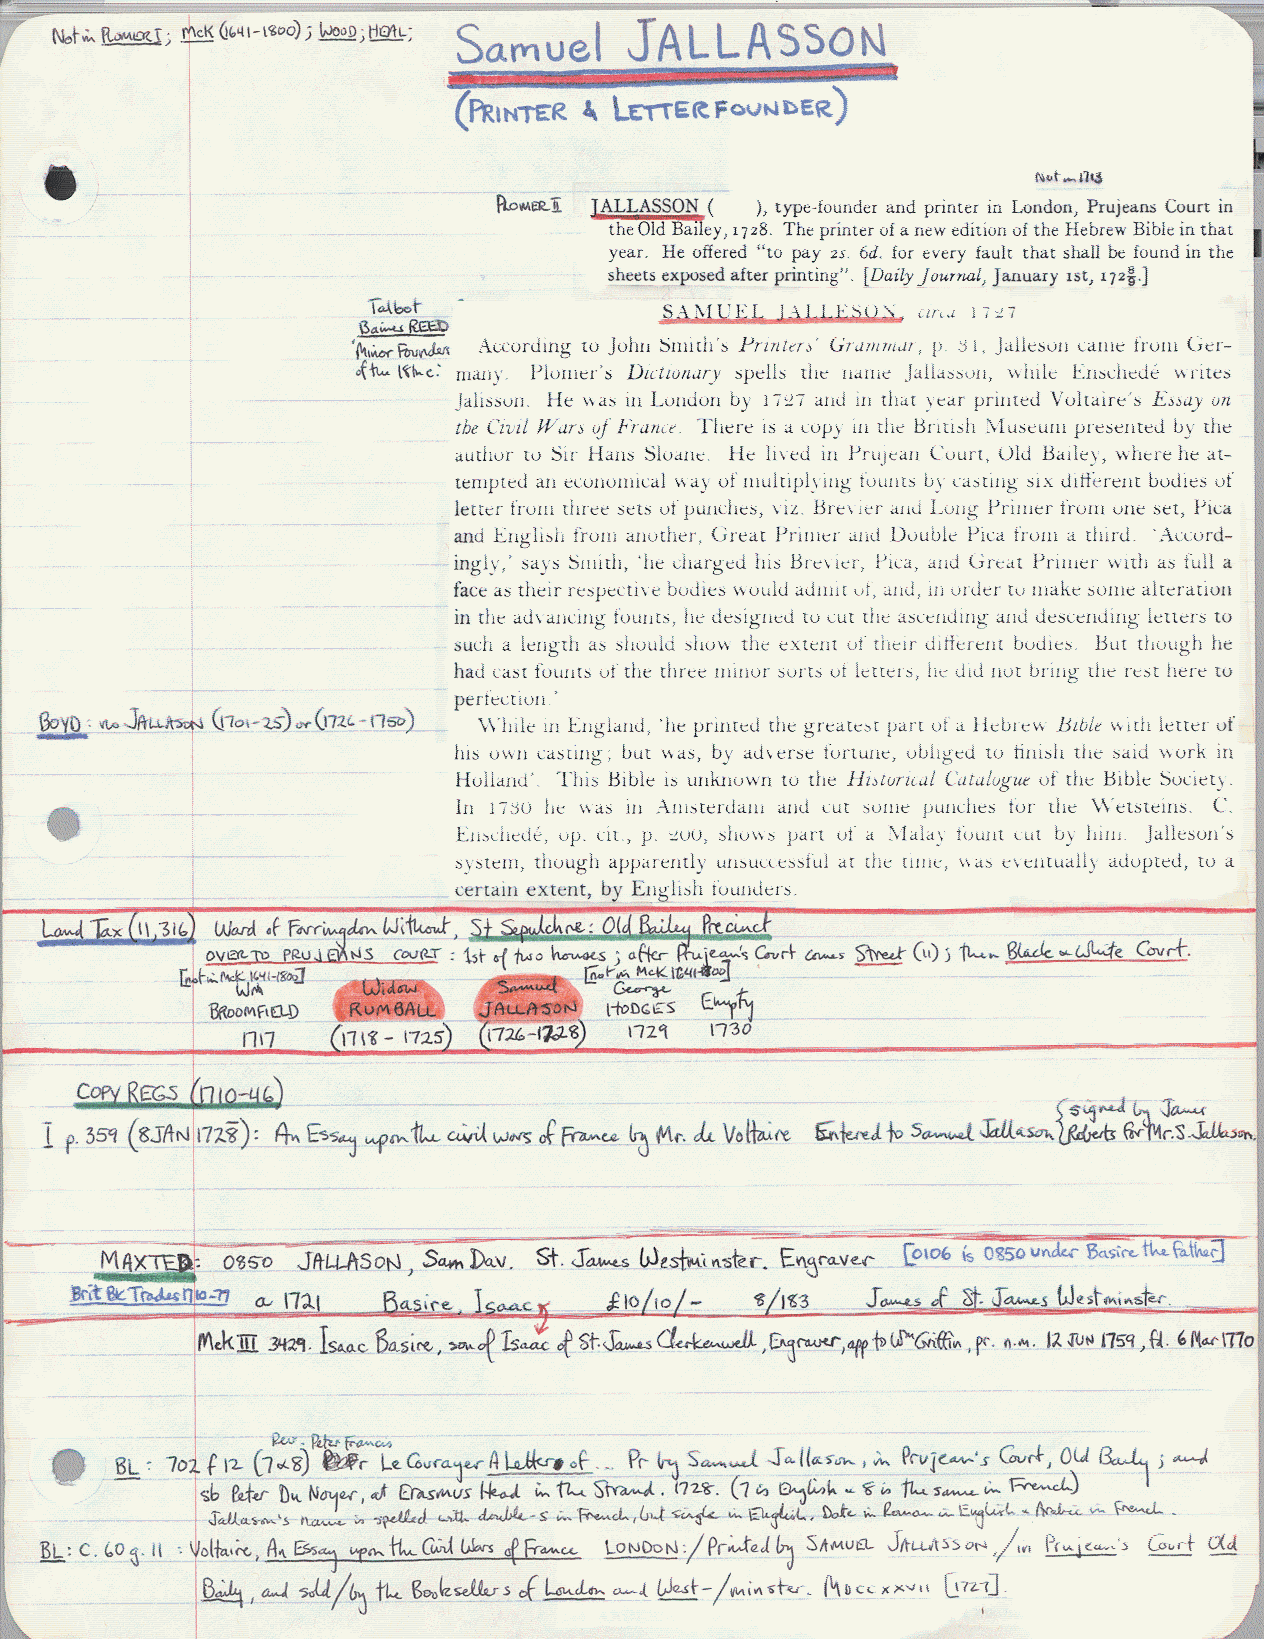 Not in PLOMER I; McK (1641-1800); WOOD; HEAL;
Samuel JALLASSON
(PRINTER & LETTERFOUNDER)
Not in 1713
PLOMER II JALLASSON ( ), type-founder and printer in London, Prujeans Court in
the Old Bailey, 1728. The printer of a new edition of the Hebrew Bible in that
year. He offered "to pay 2s. 6d. for every fault that shall be found in the
sheets exposed after printing". [Daily Journal, January 1st, 172 8/9.]
Talbot
Baines REED
'Minor Founders
of the 18th c:'
SAMUEL JALLESON, circa 1727
According to John Smith's Printers' Grammar, p. 31, Jalleson came from Ger-
many. Plomer's Dictionary spells the name Jallasson, while Enschedé writes
Jalisson. He was in London by 1727 and in that year printed Voltaire's Essay on
the Civil Wars of France. There is a copy in the British Museum presented by the
author to Sir Hans Sloane. He lived in Prujean Court, Old Bailey, where he at-
tempted an economical way of multiplying founts by casting six different bodies of
letter from three sets of punches, viz. Brevier and Long Primer from one set, Pica
and English from another, Great Primer and Double Pica from a third. 'Accord-
ingly,' says Smith, 'he charged his Brevier, Pica, and Great Primer with as full a
face as their respective bodies would admit of, and, in order to make some alteration
in the advancing founts, he designed to cut the ascending and descending letters to
such a length as should show the extent of their different bodies. But though he
had cast founts of the three minor sorts of letters, he did not bring the rest here to
perfection.'
BOYD: no JALLASON (1701-25) or (1726-1750)
While in England, 'he printed the greatest part of a Hebrew Bible with letter of
his own casting; but was, by adverse fortune, obliged to finish the said work in
Holland'. This Bible is unknown to the Historical Catalogue of the Bible Society.
In 1730 he was in Amsterdam and cut some punches for the Wetsteins. C.
Enschedé, op. cit., p. 200, shows part of a Malay fount cut by him. Jalleson's
system, though apparently unsuccessful at the time, was eventually adopted, to a
certain extent, by English founders.
Land Tax (11,316) Ward of Farringdon Without, St Sepulchre: Old Bailey Precinct
OVER TO PRUJEANS COURT: 1st of two houses; after Prujean's Court comes Street (11); then Black & White Court.
[not in McK 1641-1800] [not in McK 1641-1800]
Wm Widow Samuel George
BROOMFIELD RUMBALL JALLASON HODGES Empty
1717 (1718-1725) (1726-1728) 1729 1730
COPY REGS (1710-46)
{signed by James
I p. 359 (8 JAN 1728): An Essay upon the civil wars of France by Mr. de Voltaire Entered to Samuel Jallason {Roberts for Mr. S. Jallason.
MAXTED: 0850 JALLASON, Sam Dav. St. James Westminster. Engraver [0106 is 0850 under Basire the father]
Brit Bk Trades 1710-77 a 1721 Basire, Isaac £10/10/- 8/183 James of St. James Westminster.
McK III 3429. Isaac Basire, son of Isaac of St. James Clerkenwell, Engraver, app to Wm Griffin, pr. n.m. 12 JUN 1759, fd. 6 Mar 1770
Rev. Peter Francis
BL: 702 f 12 (7&8) Le Courayer A Letter of ... Pr by Samuel Jallason, in Prujean's Court, Old Baily; and
sb Peter Du Noyer, at Erasmus Head in the Strand. 1728. (7 is English & 8 is the same in French)
Jallason's name is spelled with double-s in French, but single in English. Date in Roman in English & Arabic in French.
BL: C. 60 g. 11: Voltaire, An Essay upon the Civil Wars of France LONDON:/Printed by SAMUEL JALLASSON,/in Prujean's Court Old
Baily, and sold/by the Booksellers of London and West-/minster. MDCCXXVII [1727].